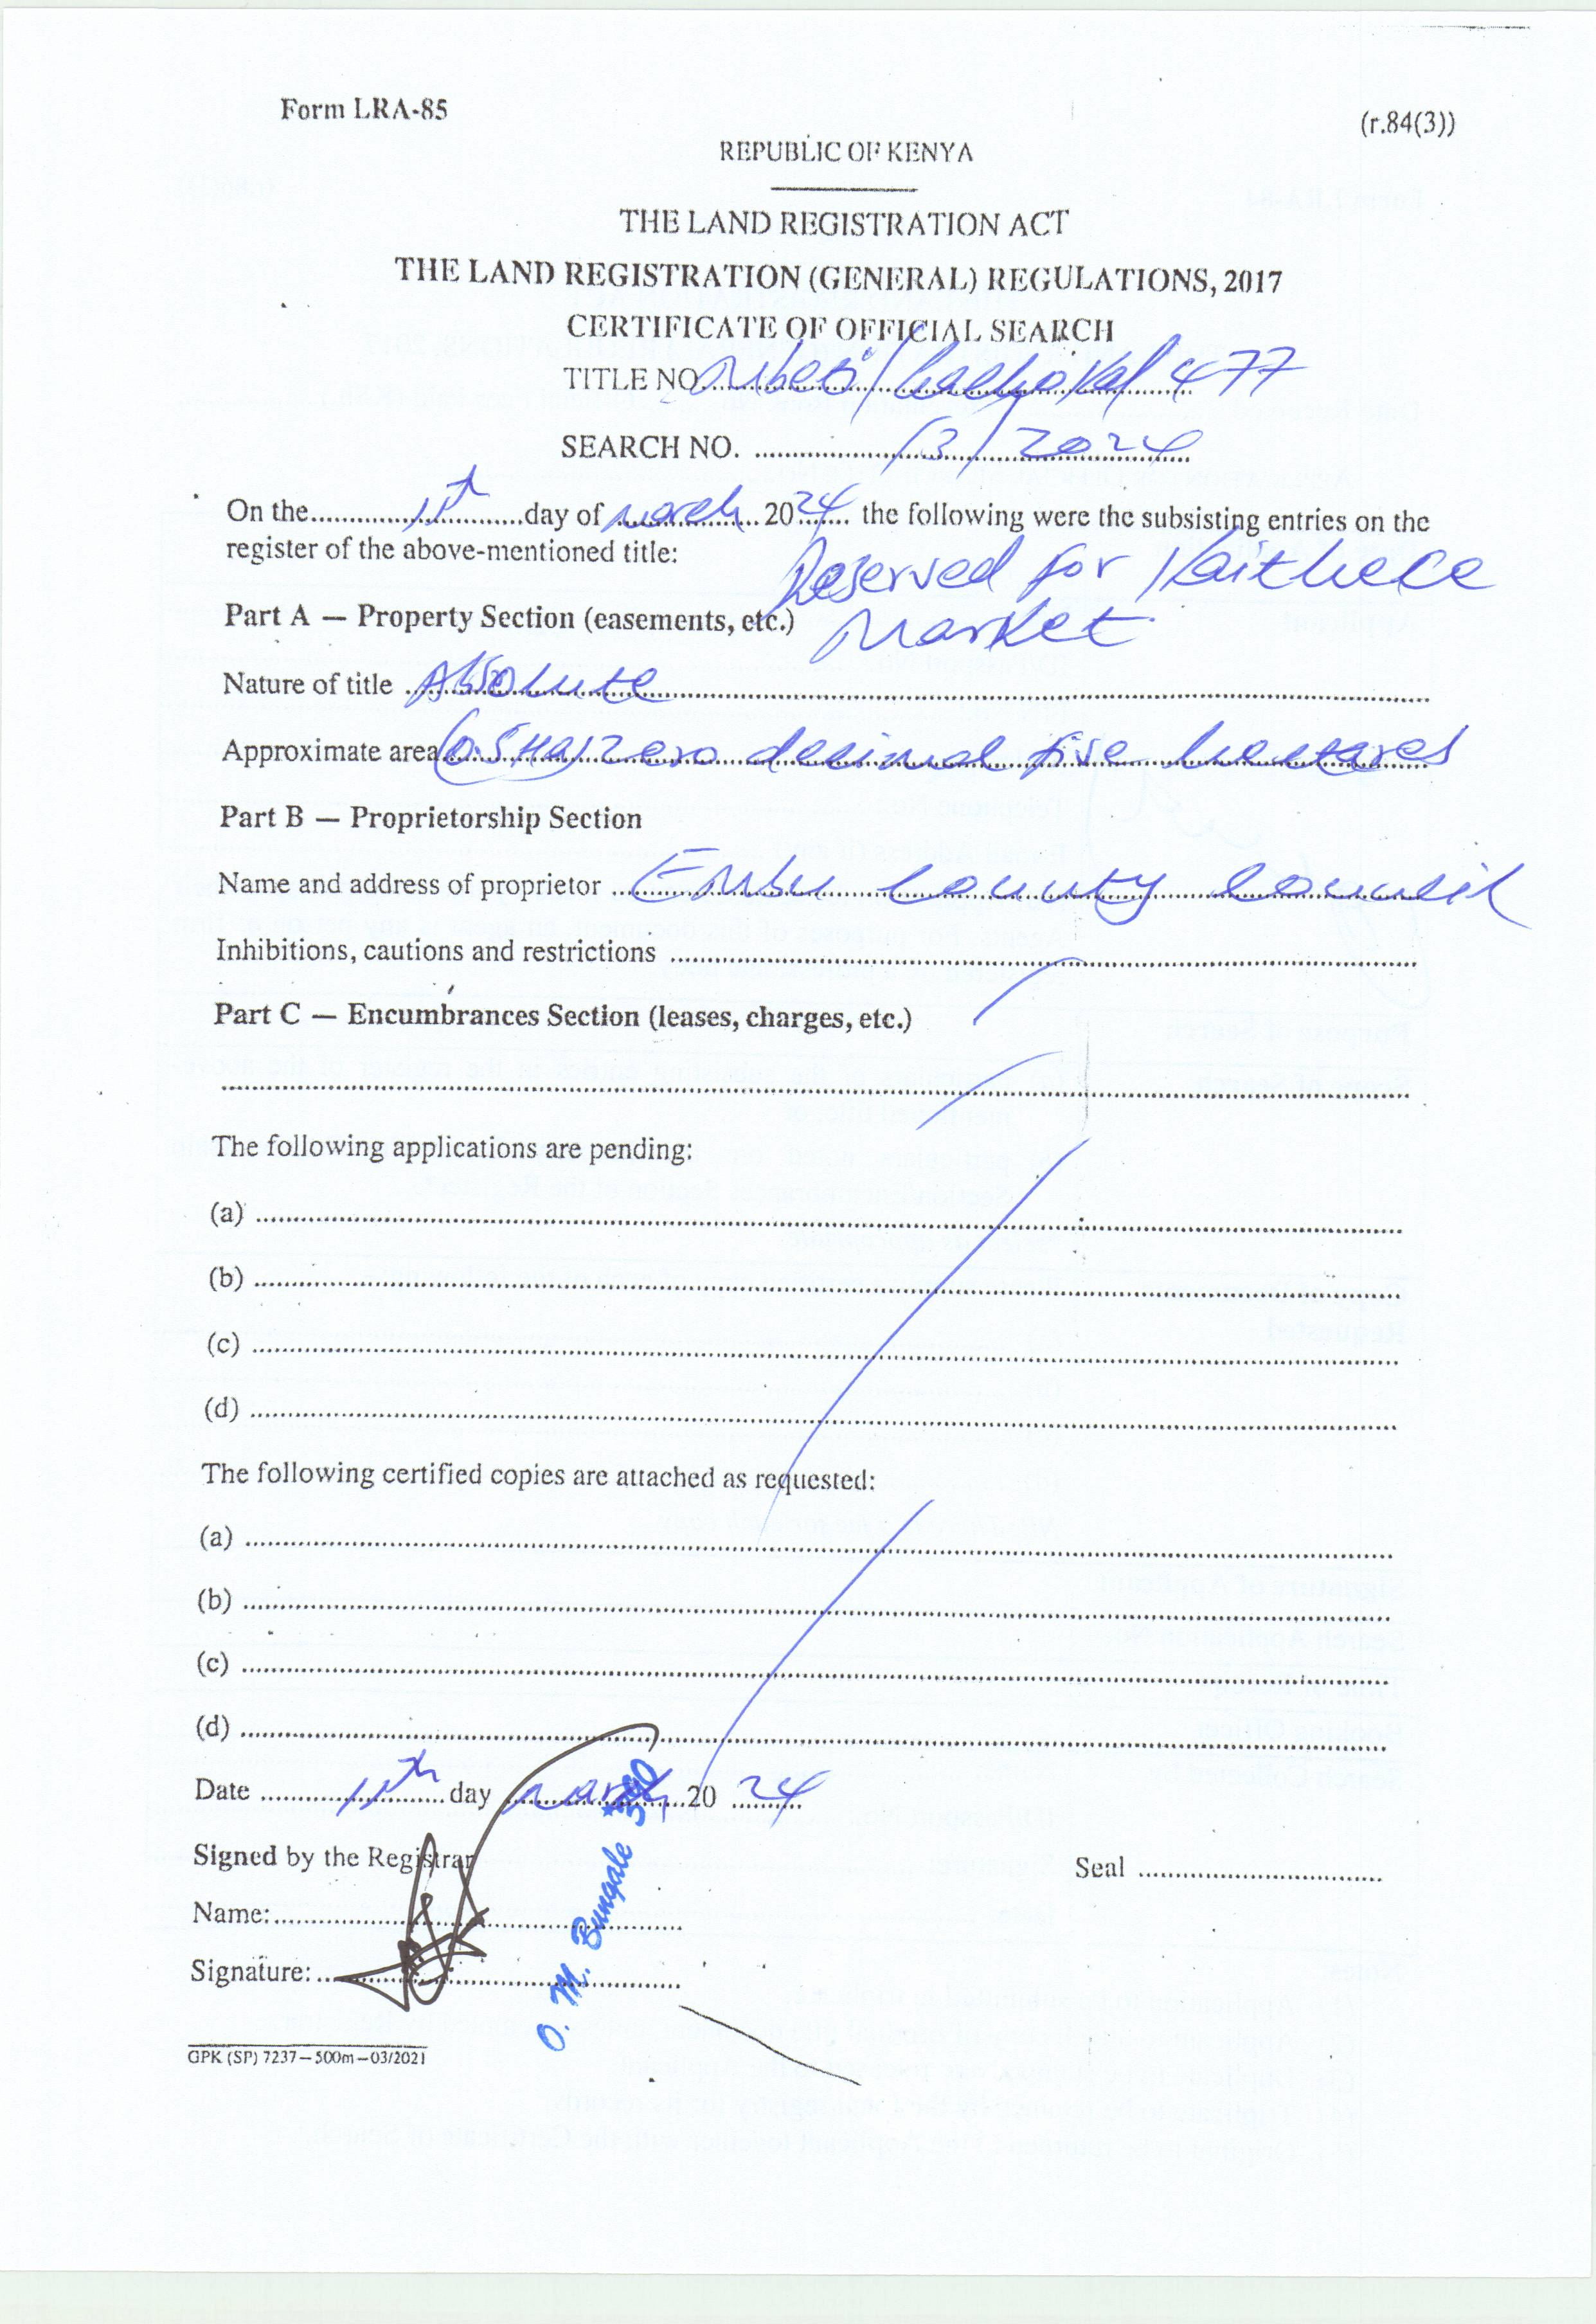 Form LRA-85
(r.84(3))
REPUBLIC OF KENYA
THE LAND REGISTRATION ACT
THE LAND REGISTRATION (GENERAL) REGULATIONS, 2017
CERTIFICATE OF OFFICIAL SEARCH
TITLE NO. Mbeti/ 477
SEARCH NO. /3/2024
On the 11th day of March 2024 the following were the subsisting entries on the
register of the above-mentioned title:
Reserved for
Part A — Property Section (easements, etc.) Market
Nature of title Absolute
Approximate area (0.5Ha) zero decimal five hectares
Part B — Proprietorship Section
Name and address of proprietor Embu County Council
Inhibitions, cautions and restrictions
Part C — Encumbrances Section (leases, charges, etc.)
The following applications are pending:
(a)
(b)
(c)
(d)
The following certified copies are attached as requested:
(a)
(b)
(c)
(d)
Date 11th day March 20 24
Signed by the Registrar
Seal
Name:
Signature:
O. M. Bungale
GPK (SP) 7237—500m—03/2021